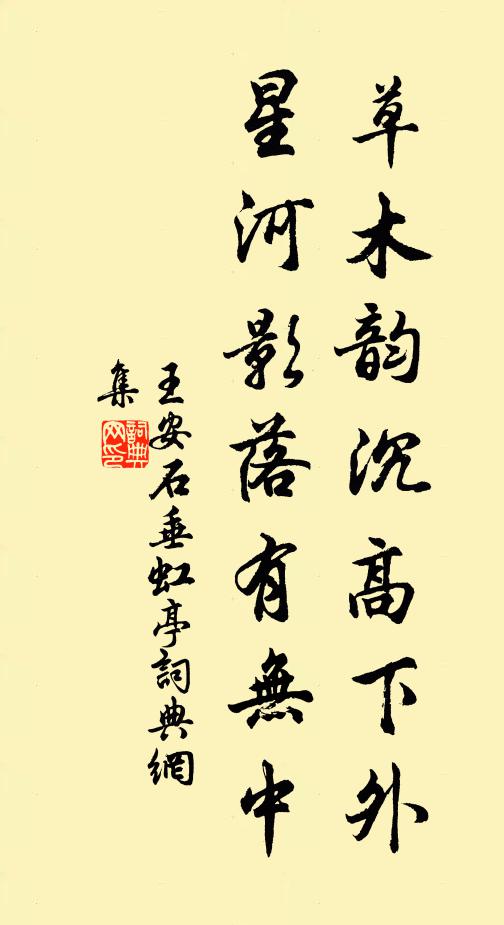 草木韵沉高下外
星河影落有無中
王安石垂虹亭詞典網
集
詞典
网印